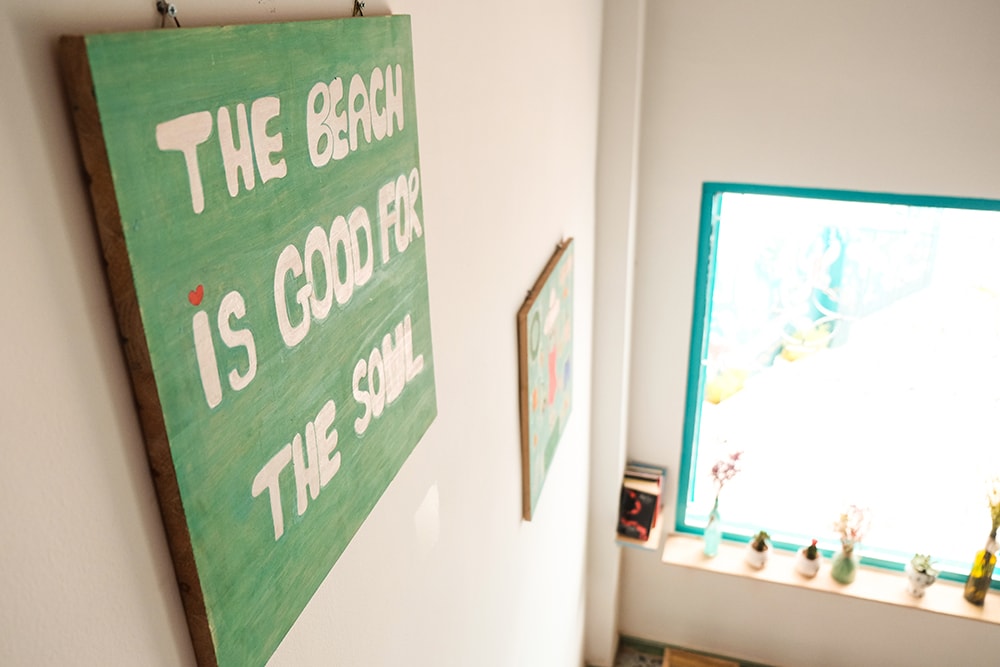 THE BEACH
iS GOOD FOR
THE SOUL